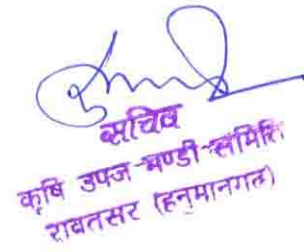 सचिव
कृषि उपज मण्डी समिति
रावतसर (हनुमानगढ)